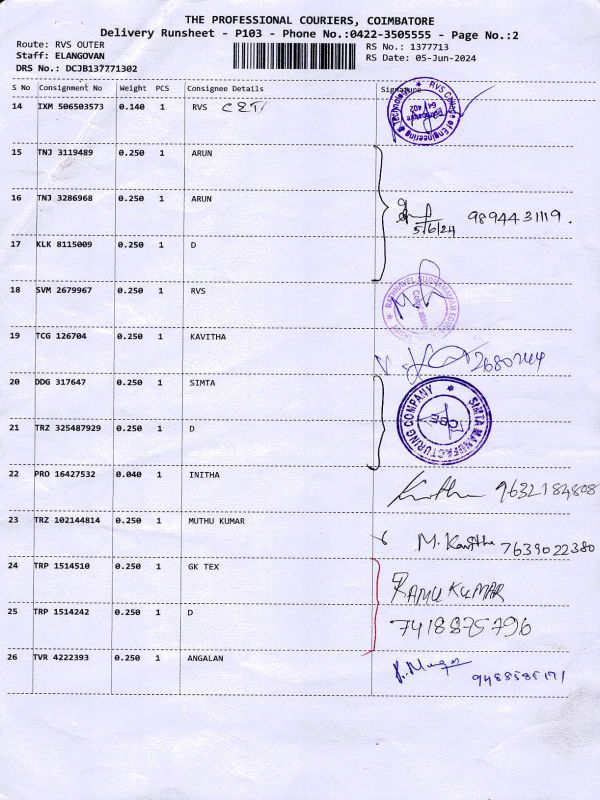 THE PROFESSIONAL COURIERS, COIMBATORE
Delivery Runsheet - P103 - Phone No.:0422-3505555 - Page No.:2
Route: RVS OUTER
Staff: ELANGOVAN
DRS No.: DCJB137771302
RS No.: 1377713
RS Date: 05-Jun-2024
S No Consignment No Weight PCS Consignee Details Signature
14 IXM 506503573 0.140 1 RVS CET
RVS College of Engineering & Technology
64 402
15 TNJ 3119489 0.250 1 ARUN
16 TNJ 3286968 0.250 1 ARUN
5/6/24 9894431119.
17 KLK 8115009 0.250 1 D
18 SVM 2679967 0.250 1 RVS
19 TCG 126704 0.250 1 KAVITHA
20 DDG 317647 0.250 1 SIMTA
SIMTA MANUFACTURING COMPANY
CBE
21 TRZ 325487929 0.250 1 D
22 PRO 16427532 0.040 1 INITHA 9632184808
23 TRZ 102144814 0.250 1 MUTHU KUMAR M. Kavitha 7639022380
24 TRP 1514510 0.250 1 GK TEX RAMU KUMAR
25 TRP 1514242 0.250 1 D 7418875796
26 TVR 4222393 0.250 1 ANGALAN